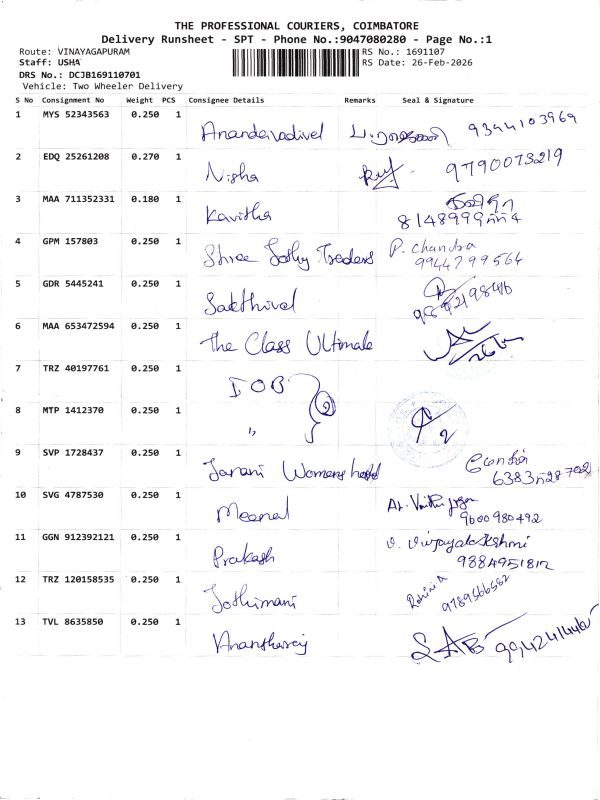 THE PROFESSIONAL COURIERS, COIMBATORE
Delivery Runsheet - SPT - Phone No.:9047080280 - Page No.:1
Route: VINAYAGAPURAM
RS No.: 1691107
Staff: USHA
RS Date: 26-Feb-2026
DRS No.: DCJB169110701
Vehicle: Two Wheeler Delivery
S No Consignment No Weight PCS Consignee Details Remarks Seal & Signature
1 MYS 52343563 0.250 1
Anandavadivel 9344103969
2 EDQ 25261208 0.270 1
Nisha 9790073219
3 MAA 711352331 0.180 1
Kavitha
4 GPM 157803 0.250 1
Shree Jothy Traders P. Chandra
9944799564
5 GDR 5445241 0.250 1
Sakthivel
6 MAA 653472594 0.250 1
The Class Ultimate
7 TRZ 40197761 0.250 1
IOB
2
8 MTP 1412370 0.250 1
"
2
9 SVP 1728437 0.250 1
Janani Womens hostel
10 SVG 4787530 0.250 1
Meenal
9600980492
11 GGN 912392121 0.250 1
Prakash V. Vijayalakshmi
12 TRZ 120158535 0.250 1
Jothimani
9789566582
13 TVL 8635850 0.250 1
Anantharaj